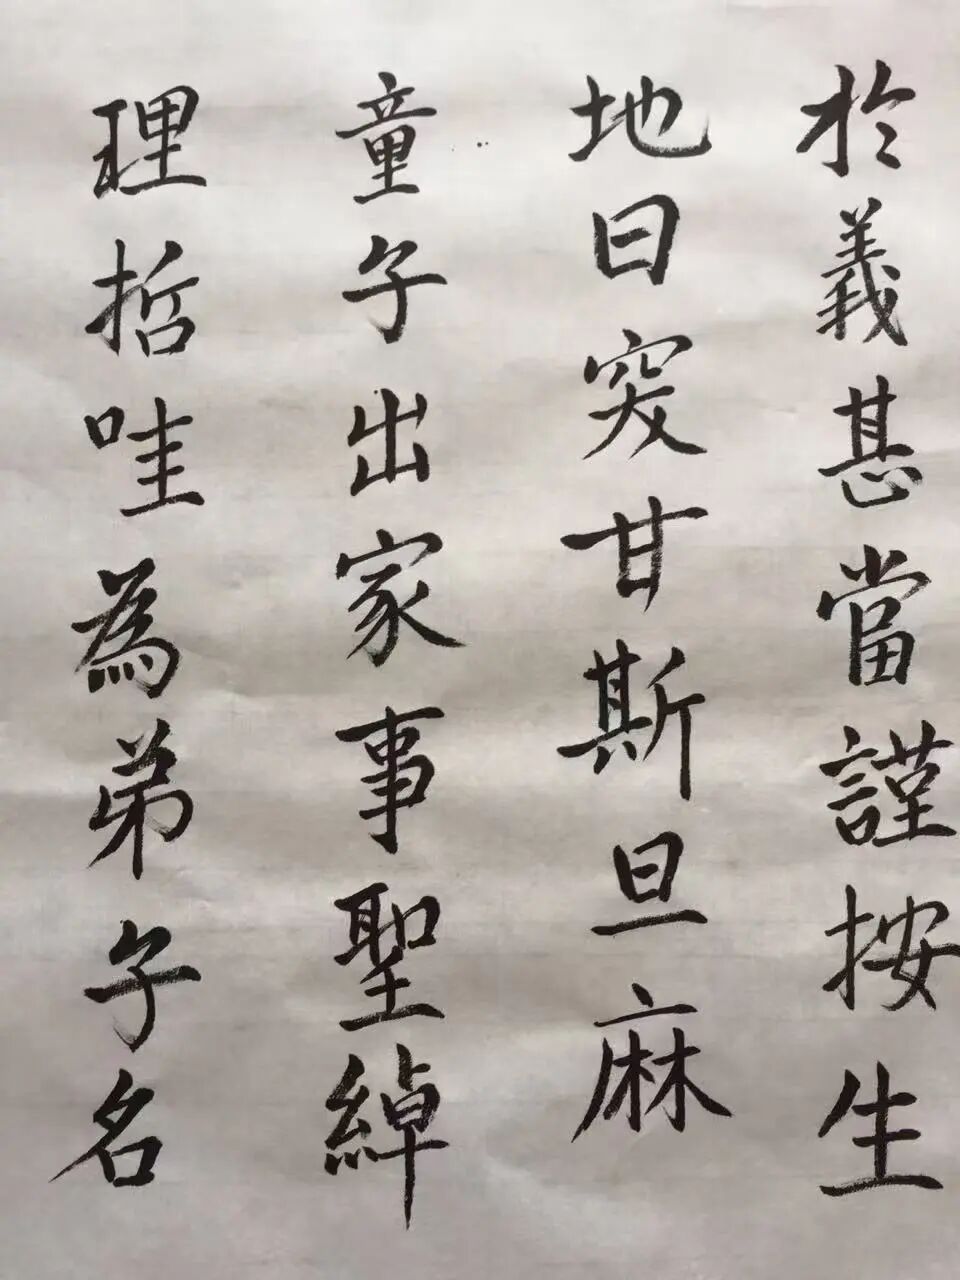 於義甚當謹按生
地曰突甘斯旦麻
童子出家事聖綽
理哲哇為弟子名